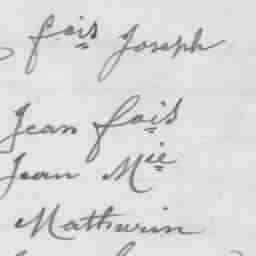 fois Joseph
Jean fois
Jean Mie
Mathurin